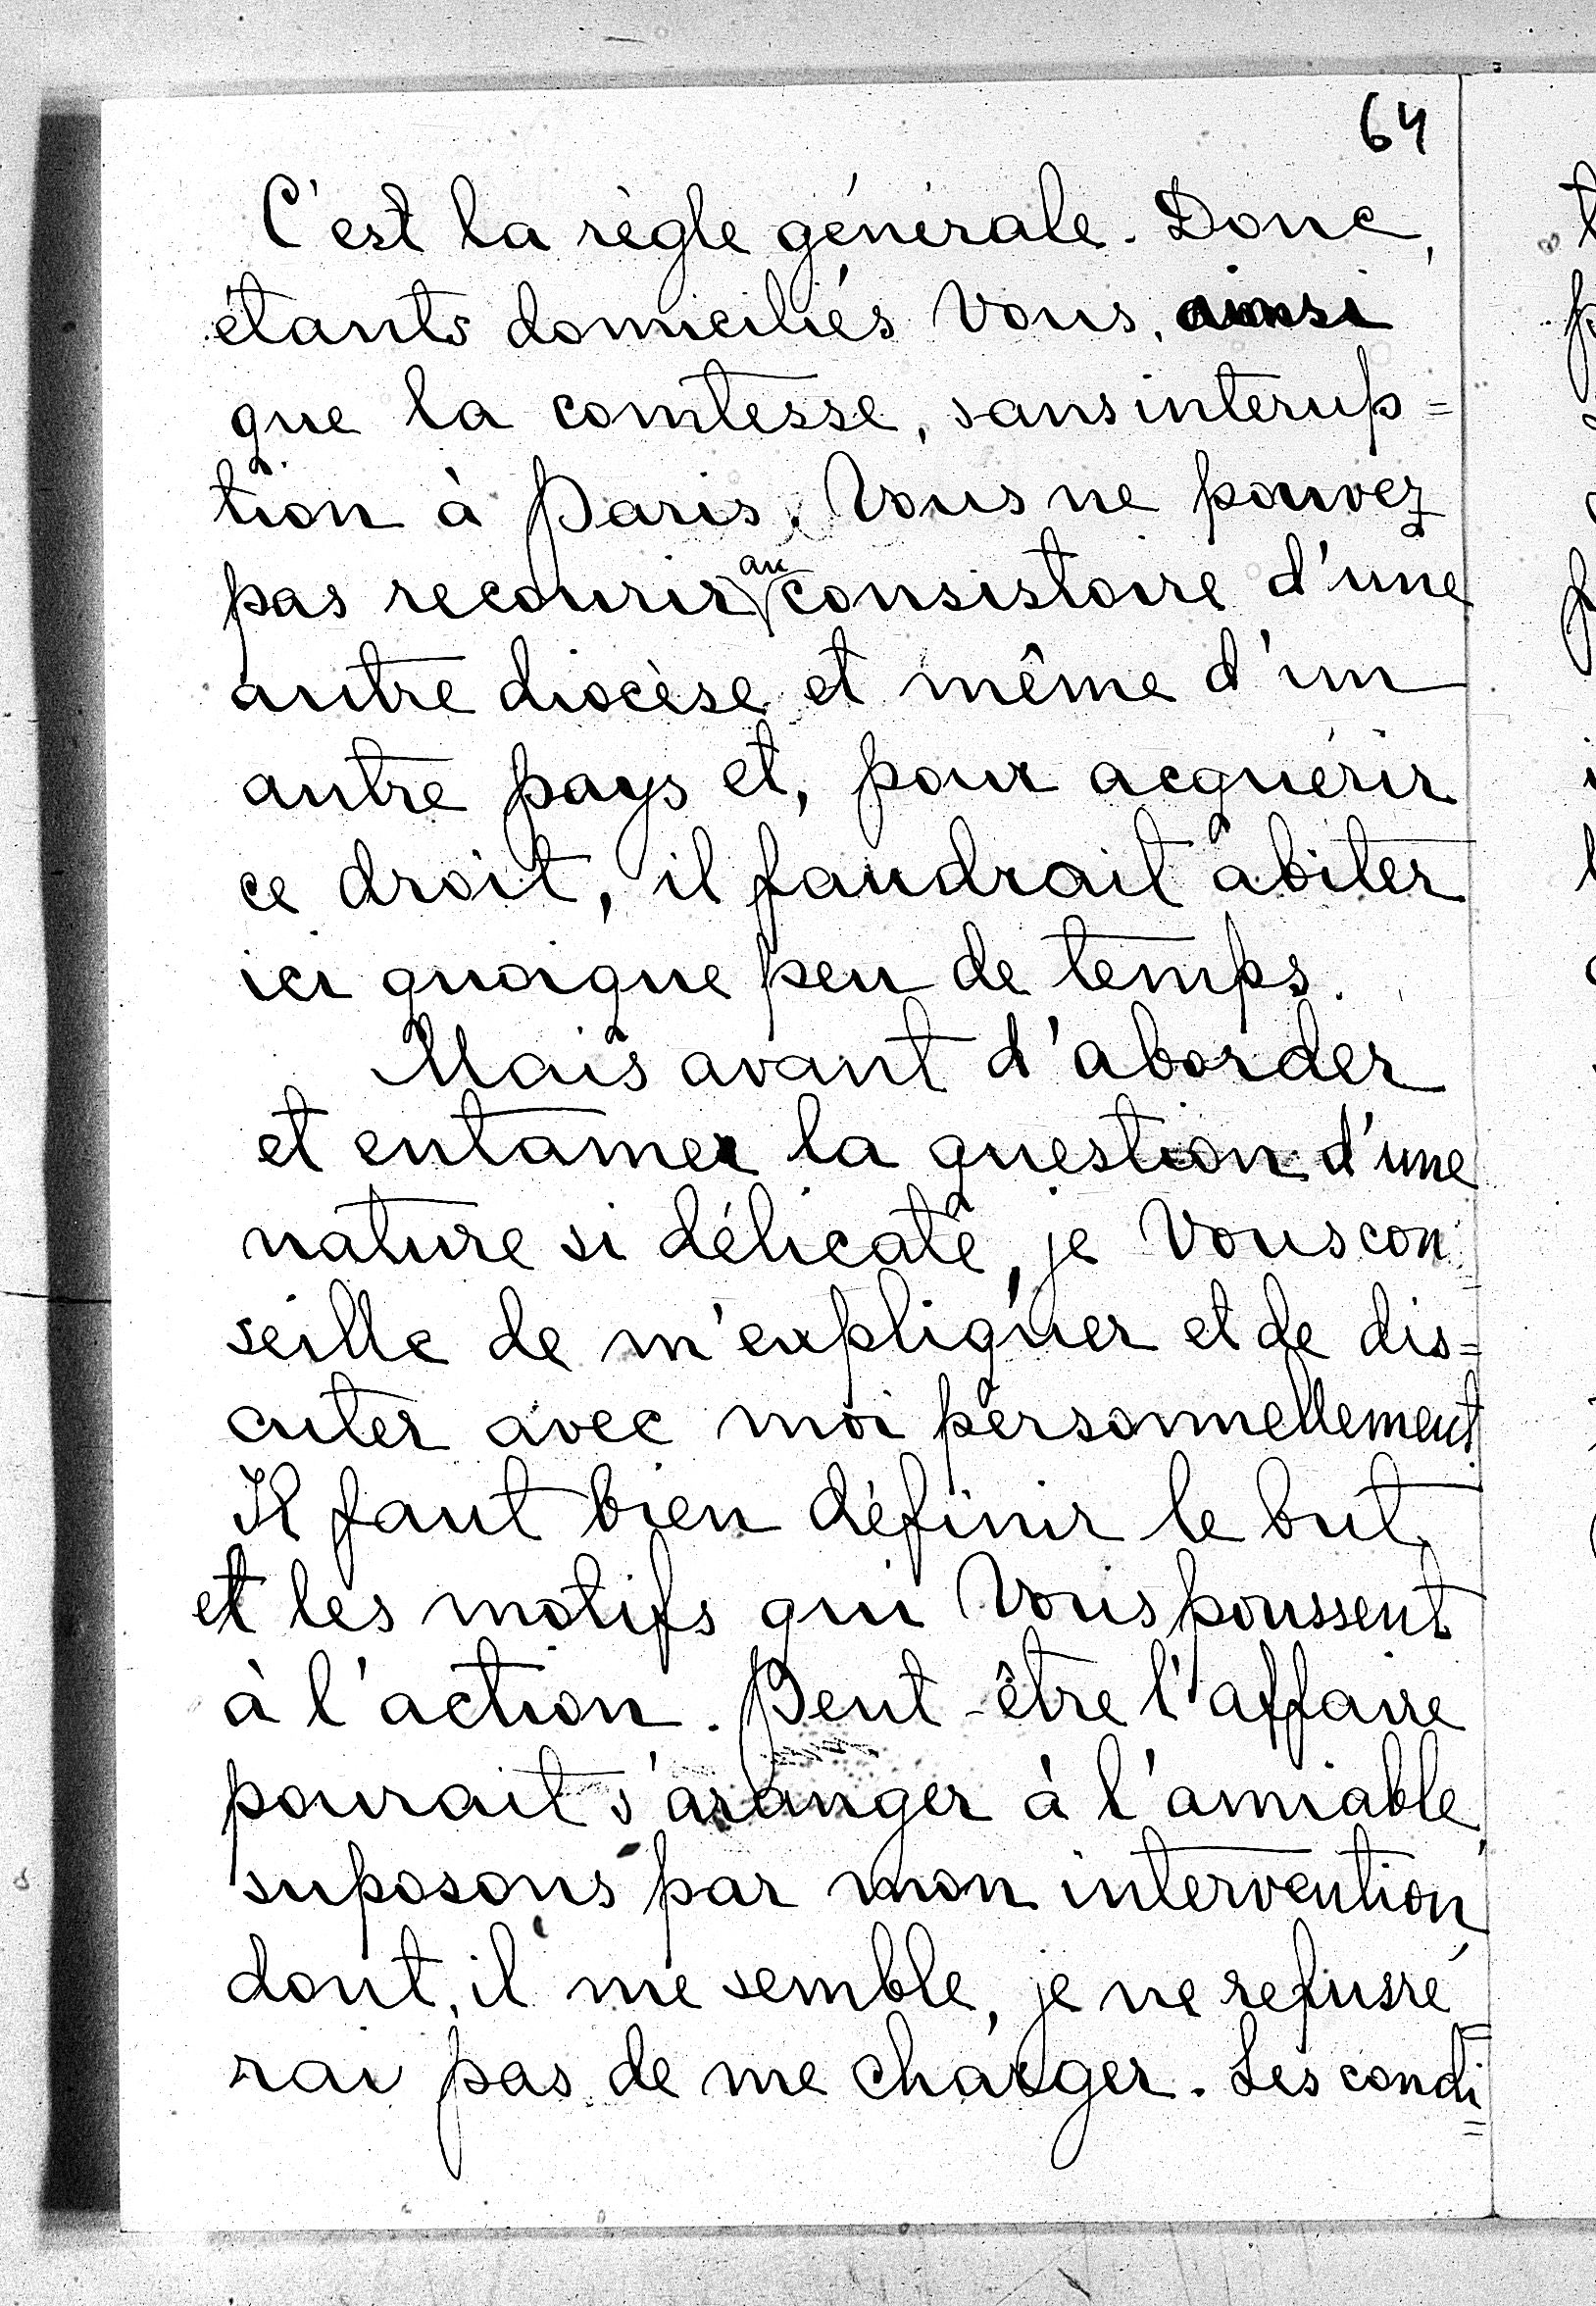 64
C'est la règle générale. Donc,
étants domiciliés Vous, ainsi
que la comtesse, sans interup=
tion à Paris. Vous ne pouvez
pas recourir au consistoire d'une
autre diocèse et même d'un
autre pays et, pour acquérir
ce droit, il faudrait abiter
ici quoique peu de temps.
Mais avant d'aborder
et entamer la question d'une
nature si délicate, je Vous con=
seille de m'expliquer et de dis=
cuter avec moi personnellement.
Il faut bien définir le but
et les motifs qui Vous poussent
à l'action. Peut-être l'affaire
pourait s'aranger à l'amiable,
suposons par mon intervention,
dont, il me semble, je ne refusre=
rai pas de me charger. Les condi=